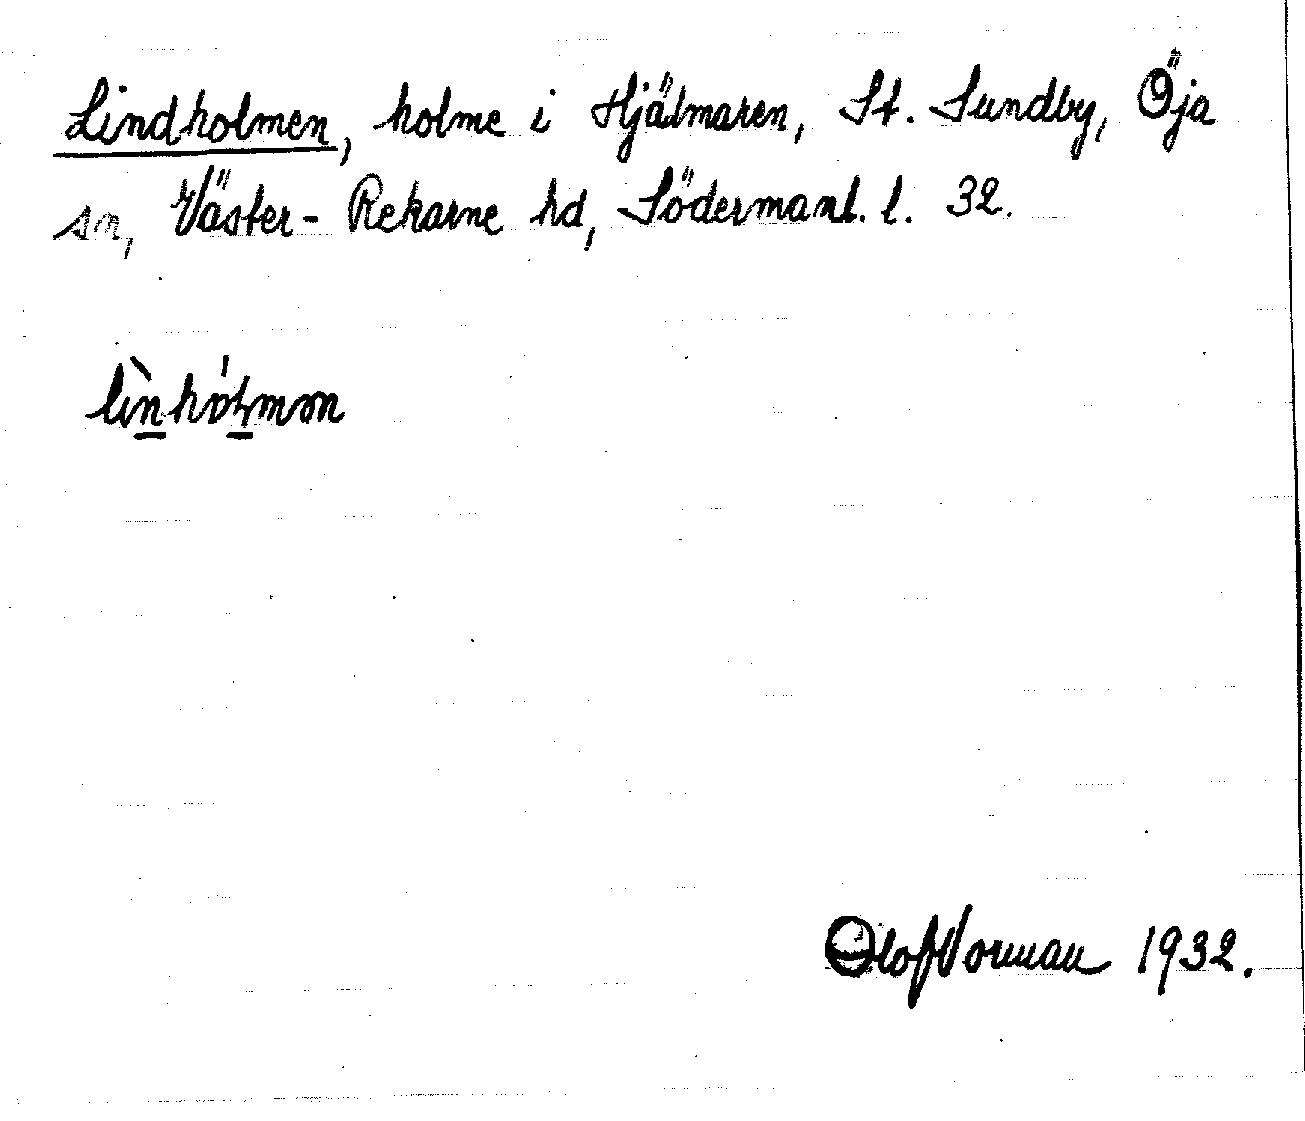 Lindholmen, holme i Hjälmaren, St. Sundby, Öja
sn, Väster-Rekarne hd, Södermanl. l. 32.
lìn̲hóɫ̲mən
Olof Norman 1932.